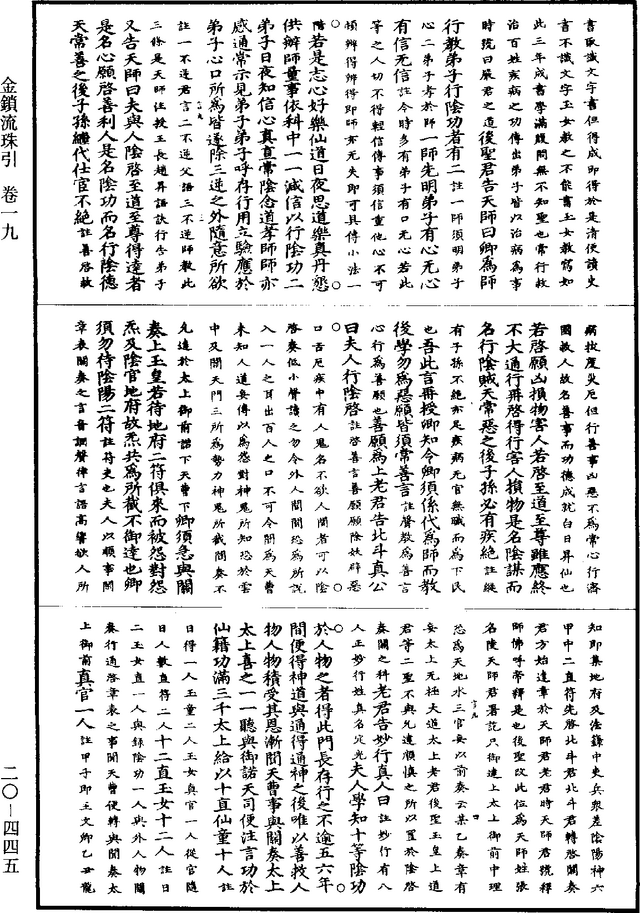 書取識文字書但得成即得於是清使讀史
言不識文字玉女教之不能書玉女教寫如
此三年成書學滿腹問無不知聖也常行救
治百姓疾病之功傳出弟子皆以治病為事
時號曰嚴君之道後聖君告天師曰卿為師
行教弟子行陰功者有二註一師須明弟子
心二弟子考於師一師先明弟子有心无心
有信无信註今時多有弟子有口无心若此
等之人切不得輕信傳事須信重他心不可
領辨得辨得即師亦无失即可具傳小法一
階若是志心好樂仙道日夜思道樂真丹慇
供辦師量事依科中一一誠信以行陰功二
弟子日夜知信心真直常陰念道孝師師亦
感通常示見弟子弟子呼存行用立驗應於
弟子心口所為皆遂除三逆之外隨意所欲
註一不逆君言二不逆父語三不逆師教此
三條是天師位教王長趙昇語訣行告弟子
又告天師曰夫與人陰啓至道至尊得達者
是名心願啓善利人是名陰功而名行陰德
天常善之後子孫繼代仕官不絶註善啓救
病救度災厄但行善事凶惡不為常心行濟
國救人故名善事而功德成就白日昇仙也
若啓願凶損物害人若啓至道至尊雖應終
不大通行冊啓得行害人損物是名陰謀而
名行陰賊天常惡之後子孫必有疾絶註縱
有子孫不絶亦足疾病无官無職而為下民
也吾此言再授卿知令卿須係代為師而教
後學勿為惡願皆須常善言註聲教為善言
心行為善願也善願為上老君告北斗真公
曰夫人行陰啓註啓善言善願願除妖辟惡
口舌厄疾中有人鬼名不欲人聞者可以陰
啓奏低小聲讀之勿令外人聞聞恐為所説
入一人之耳出百人之口不可令聞為天曹
未知人道妄傳以為怨對神鬼所知恐於雲
中及聞天門三所為勢力神鬼所截聞奏不
允達於太上御前諮下天曹下卿須急與關
奏上玉皇若待地府二符俱來而被怨對怨
炁及陰官地府故炁共為所截不御達也卿
須勿待陰陽二符註符吏也夫人以順事聞
章表關奏之言音調聲律言語高響欲人所
知即集地府及法籙中吏兵眾差陰陽神六
甲中二直符先啓北斗君北斗君轉啓聞奏
君方始達章於天師君老君時天師君號釋
師佛呼帝釋是也後聖改此位為天師姓張
名陵天師君署訖只御達上太上御前中理
恐為天地水三官妄以前奏云某乙奏章有
妄太上无極大道太上老君後聖玉皇上道
君等二聖不與允達順慎之所以置於陰啓
奏關之科老君告妙行真人曰註妙行有八
人正妙行姓真名定光夫人學知十等陰功
於人物之者得此門長存行之不逾五六年
間便得神道與通得通神之後唯以善救人
物人物積受其恩漸聞天曹事與關奏太上
太上喜之一一聽與御諾天司便注言功於
仙籍功滿三千太上給以十直仙童十人註
日得一人玉童二人玉女真官一人從官隨
日人數直得二人十二直玉女十二人註日
二玉女直一人與錄陰功一人與外人物聞
奏行通啓章表之事聞天曹使轉與聞奏太
上御前真官一人註甲子即王文卿乙丑龍
金鎖流珠引 卷一九
二〇—四四五